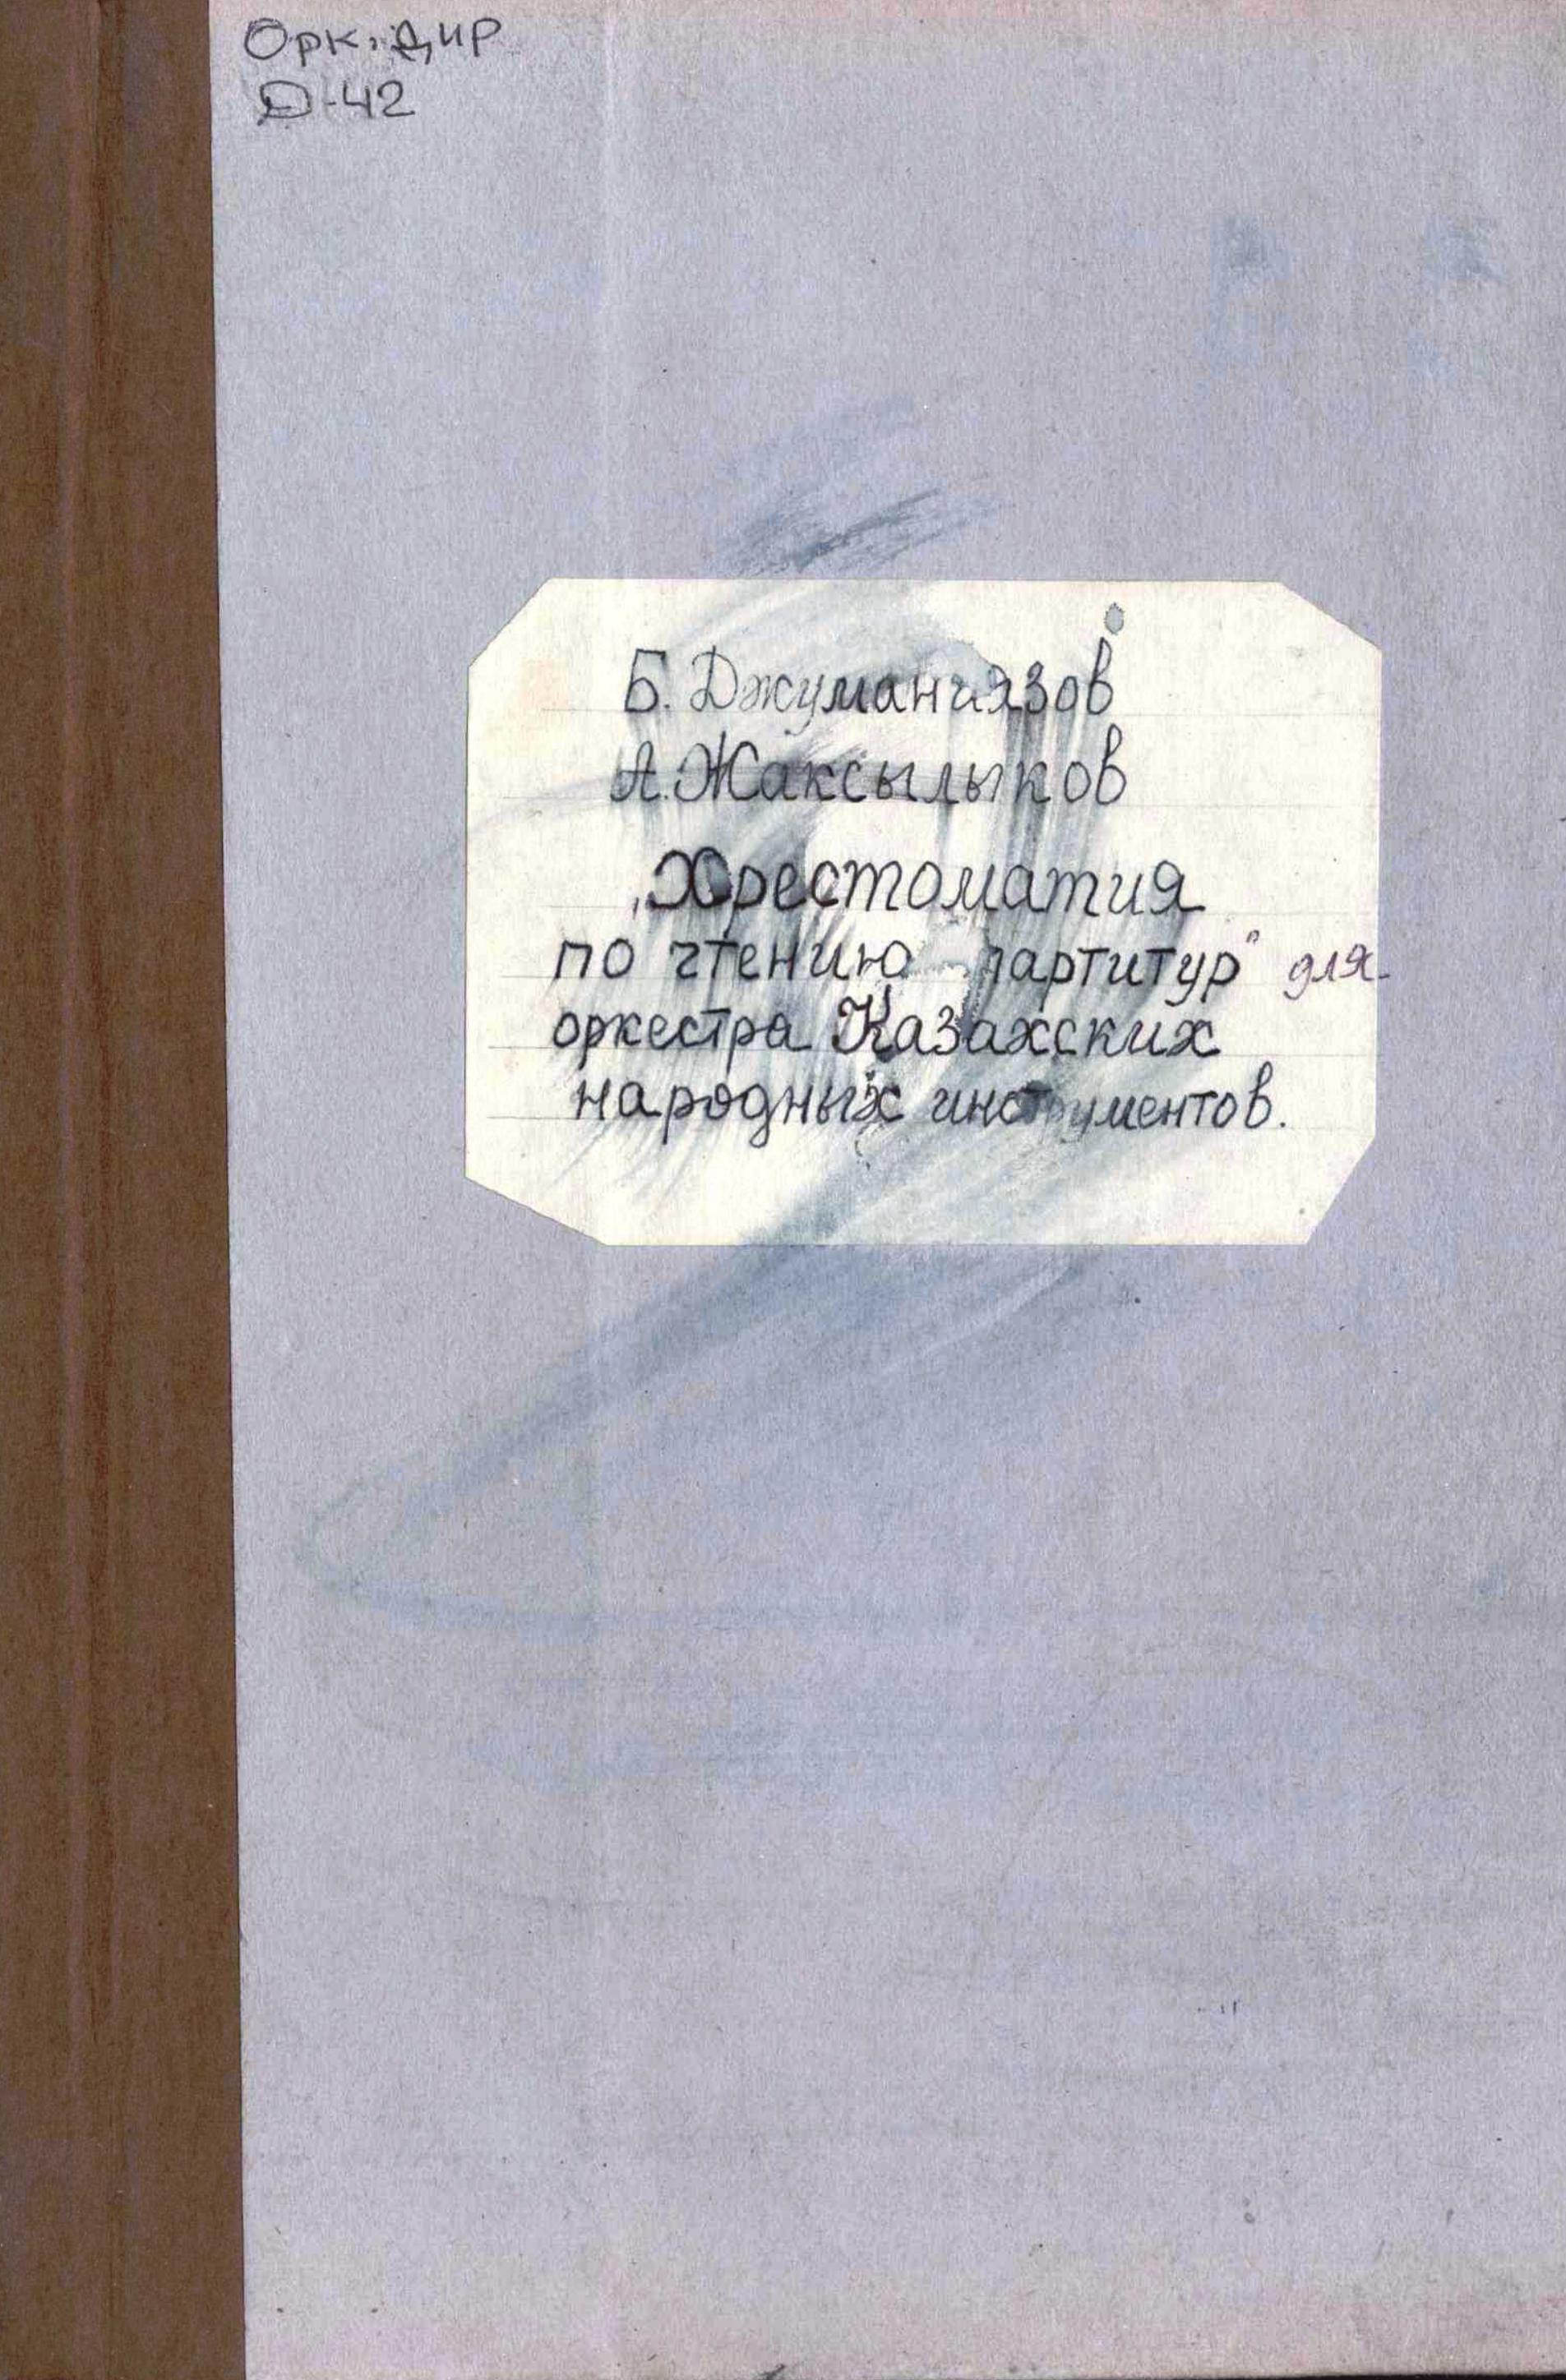 Орк. дир
Д-42
Б. Джуманиязов
А. Жаксылыков
„Хрестоматия
по чтению партитур" для
оркестра Казахских
народных инструментов.